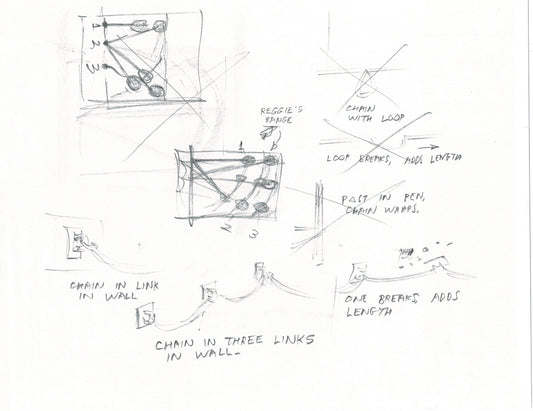 1
2
3
REGGIE'S
RANGE
CHAIN
WITH LOOP
1
LOOP BREAKS, ADDS LENGTH
POST IN PEN,
CHAIN WRAPS.
2 3
CHAIN IN LINK
IN WALL
ONE BREAKS, ADDS
LENGTH
CHAIN IN THREE LINKS
IN WALL